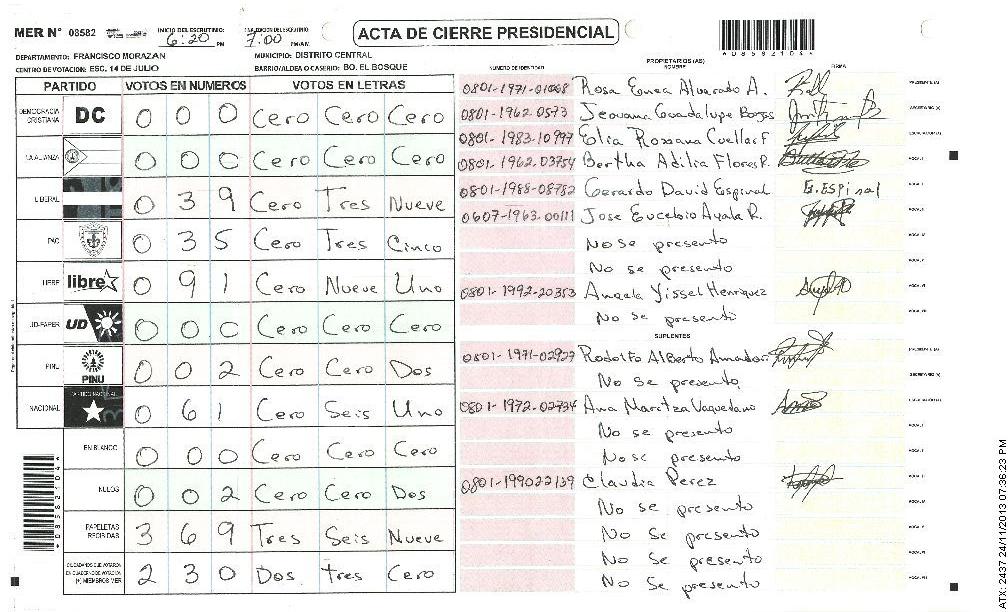 MER Nº 08582 INICIO DEL ESCRUTINIO: 6:20 PM 7:00 PM/AM. ACTA DE CIERRE PRESIDENCIAL
DEPARTAMENTO: FRANCISCO MORAZAN MUNICIPIO: DISTRITO CENTRAL
CENTRO DE VOTACION: ESC. 14 DE JULIO BARRIO/ALDEA O CASERIO: BO. EL BOSQUE
PARTIDO VOTOS EN NUMEROS VOTOS EN LETRAS
DEMOCRACIA CRISTIANA DC 0 0 0 Cero Cero Cero
LA ALIANZA 0 0 0 Cero Cero Cero
LIBERAL 0 3 9 Cero Tres Nueve
PAC 0 3 5 Cero Tres Cinco
LIBRE libre 0 9 1 Cero Nueve Uno
UD-FAPER UD 0 0 0 Cero Cero Cero
PINU PINU 0 0 2 Cero Cero Dos
NACIONAL PARTIDO NACIONAL 0 6 1 Cero Seis Uno
EN BLANCO 0 0 0 Cero Cero Cero
NULOS 0 0 2 Cero Cero Dos
PAPELETAS RECIBIDAS 3 6 9 Tres Seis Nueve
CIUDADANOS QUE VOTARON EN CUADERNO DE VOTACION (+) MIEMBROS MER 2 3 0 Dos tres Cero
NUMERO DE IDENTIDAD PROPIETARIOS (AS) NOMBRE FIRMA
0801-1971-01068 Rosa Enea Alvarado A.
0801-1962-0573 Jeovana Guadalupe Borjas
0801-1983-10997 Elia Rossana Cuellar F
0801-1962-03754 Bertha Adilia Flores R.
0801-1988-08782 Gerardo David Espinal G.Espinal
0607-1963-00111 Jose Eucebio Ayala R.
No se presento
No se presento
0801-1992-20353 Angela Yissel Henriquez
No se presento
SUPLENTES
0801-1971-02927 Rodolfo Alberto Amador
No se presento
0801-1972-02734 Ana Maritza Vaquedano
No se presento
No se presento
0801-199022139 Claudia Perez
No se presento
No se presento
No se presento
No se presento
ATX-2437 24/11/2013 07:36:23 PM